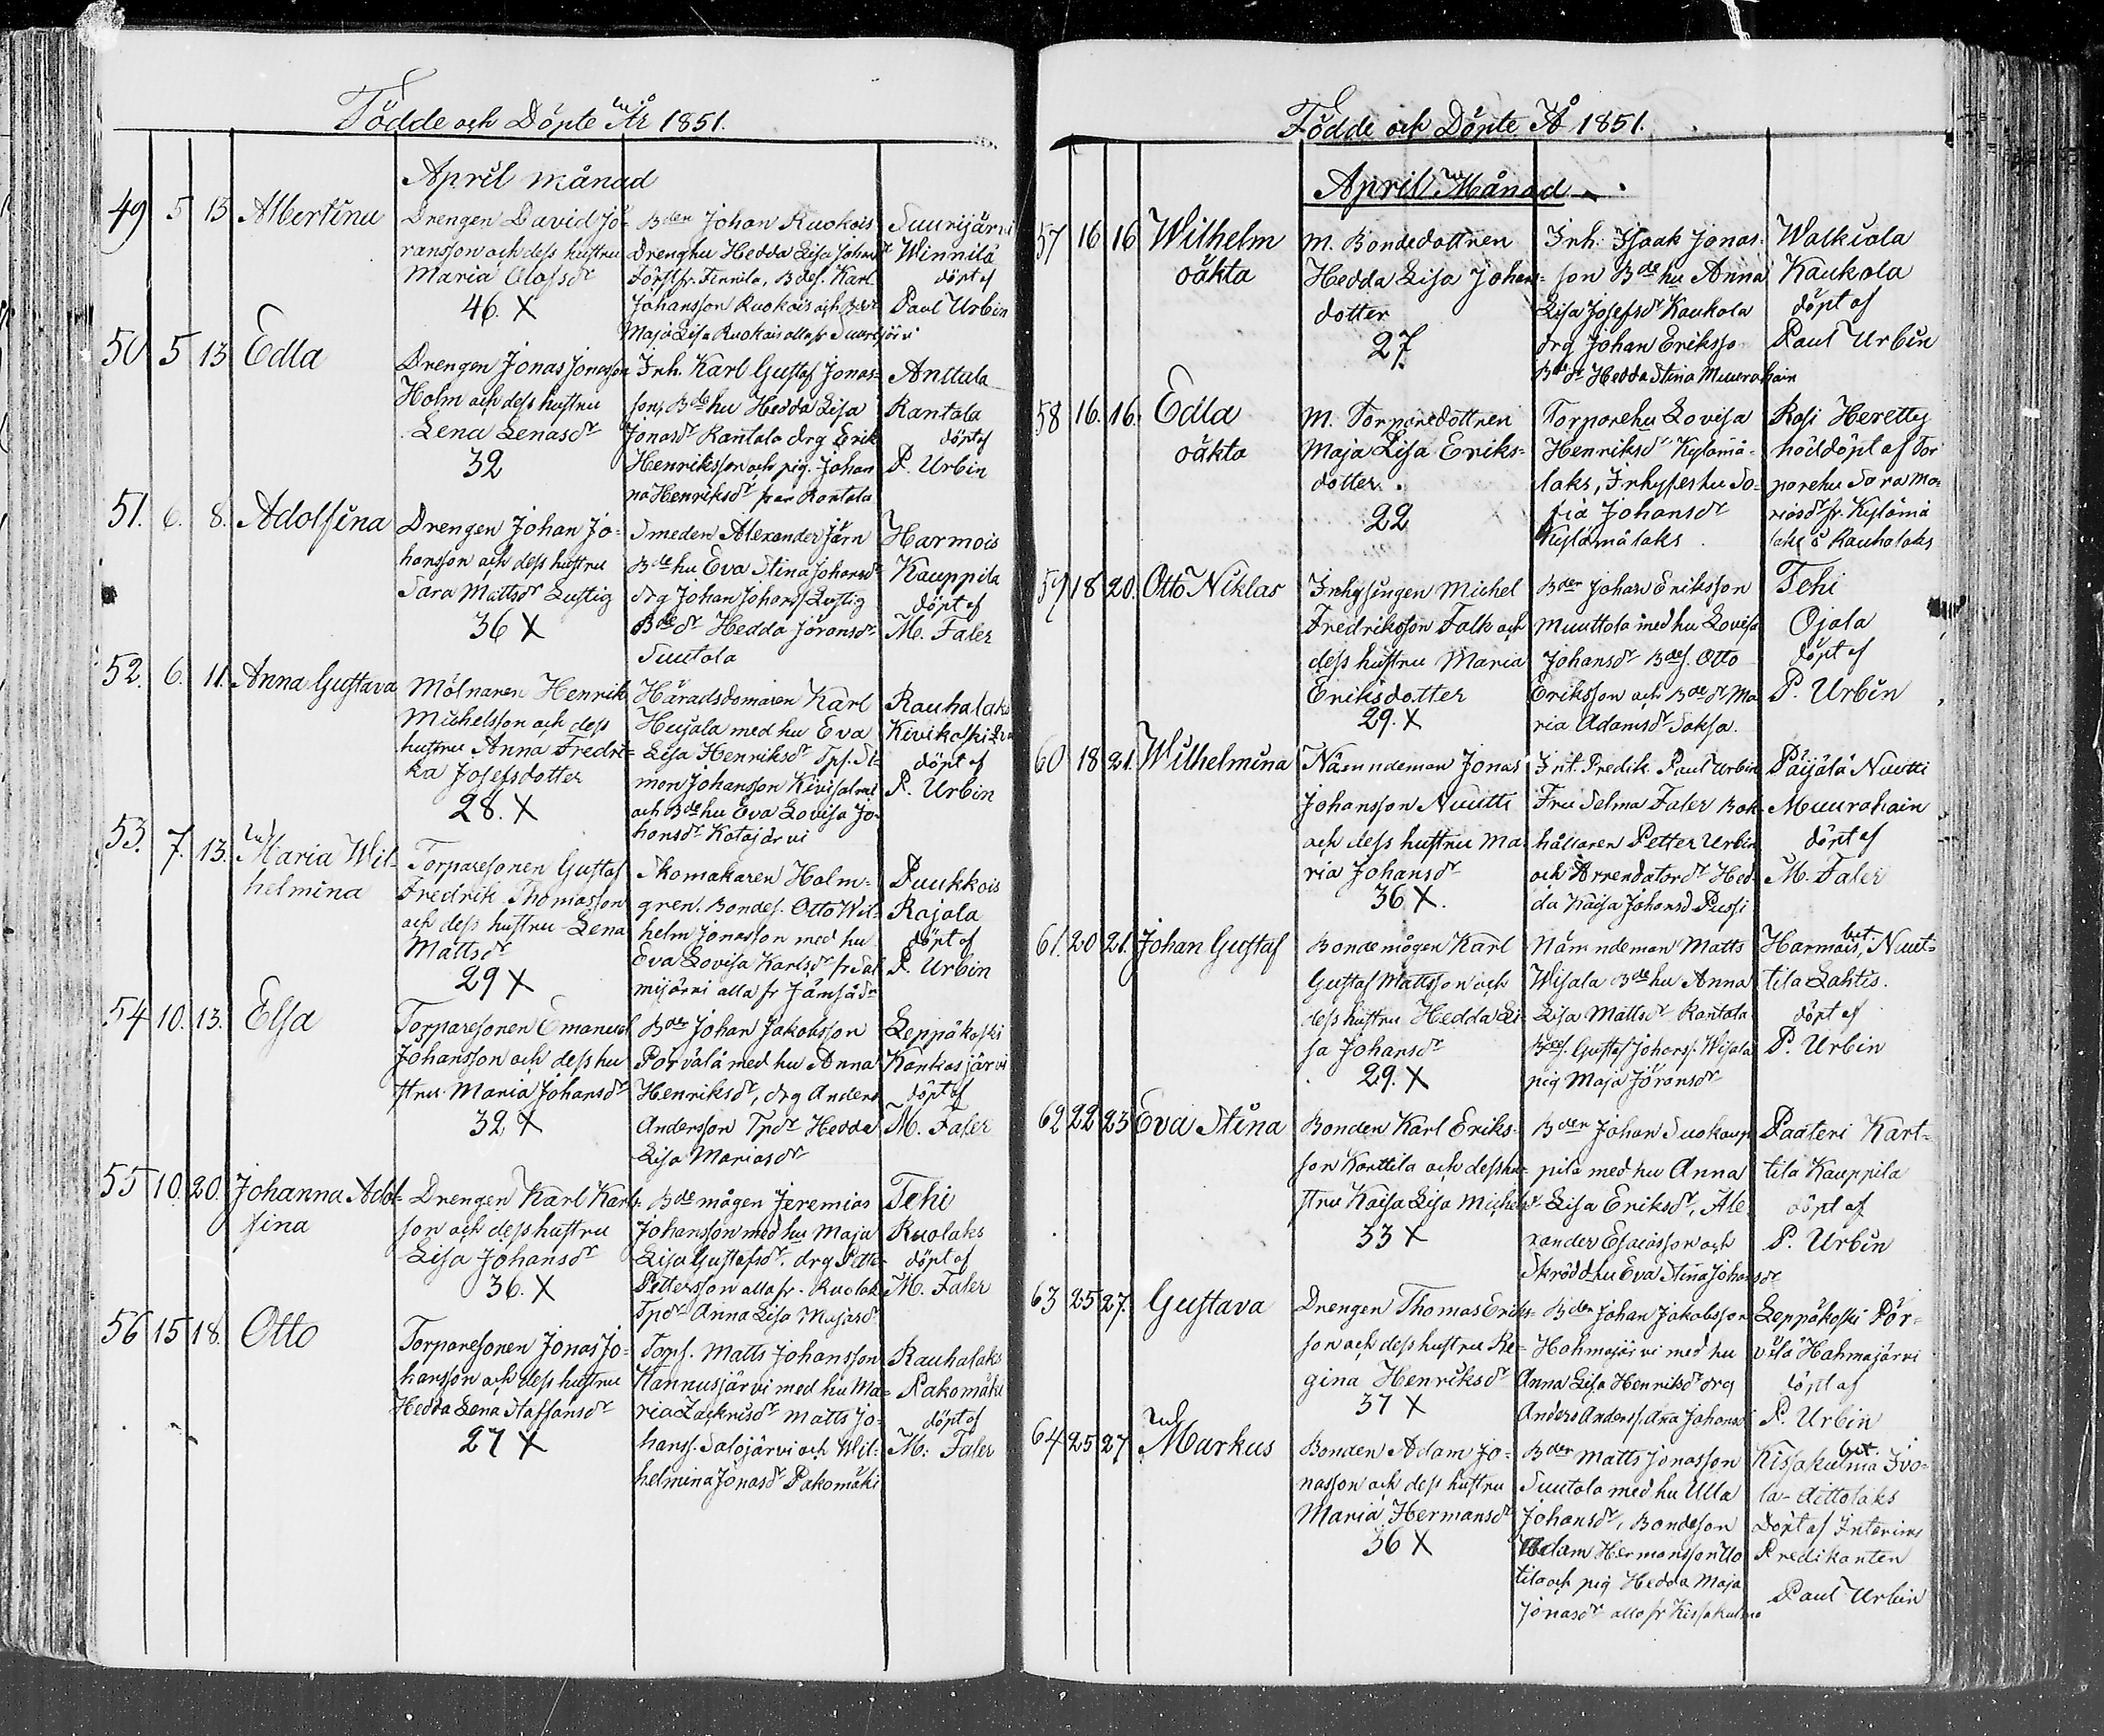 Födde och Döpte År 1851.
April månad
49 5 13 Albertina
Drengen David Jö-
ransson och dess hustru
Maria Olofsdr
46. X
Bden Johan Ruokois
Drenghu Hedda Lisa Johansdr
Johansson Ruokois och
Maja Lisa Ruokois alla fr Suurijärvi
Suurijärvi
Winnilä
döpt af
Paul Urbin
50 5 13 Edla
Drengen Jonas Jonasson
Holm och dess hustru
Lena Lenasdr
32
Inh. Karl Gustaf Jonas-
son, Bdehu Hedda Lisa
Jonasdr Rantala drg Erik
Henriksson och pig. Johan
na Henriksdr fran Rantala
Anttala
Rantala
döpt af
P. Urbin
51. 6. 8. Adolfina
Drengen Johan Jo-
hansson och dess hustru
Sara Mattsdr Lustig
36 X
Smeden Alexander Järn
Bdehu Eva Stina Johansdr
drg Johan Johanss Lustig
Bdedr Hedda Jöransdr
Suutala
Harmois
Kauppila
döpt af
M. Faler
52. 6. 11. Anna Gustava
Mölnaren Henrik
Michelsson och dess
hustru Anna Fredri-
ka Josefsdotter
28. X
Häradsdomaren Karl
Heijala med hu Eva
Lisa Henriksdr Tps. Si-
mon Johansson Kivisalmi
och Bdehu Eva Lovisa Jo-
hansdr Katajärvi
Rauhalaks
Kivikoski
döpt af
P. Urbin
53. 7. 13. Maria Wil-
helmina
Torparesonen Gustaf
Fredrik Thomasson
och dess hustru Lena
Mattsdr
29 X
Skomakaren Holm-
gren. Bondes. Otto Wil-
helm Jonasson med hu
Eva Lovisa Karlsdr fr Sal
mijärvi alla fr Jämsä Sn
Puukkois
Rajala
döpt af
P. Urbin
54 10. 13. Elsa
Torparesonen Emanuel
Johansson och dess hu
stru Maria Johansdr
32 X
Bden Johan Jakobsson
Pörvälä med hu Anna
Henriksdr, drg Anders
Andersson Tpdr Hedda
Lisa Mariasdr
Leppäkoski
Kankasjärvi
döpt af
M. Faler
55 10. 20. Johanna Adol-
fina
Drengen Karl Karls-
son och dess hustru
Lisa Johansdr
36. X
Bdemågen Jeremias
Johansson med hu Maja
Lisa Gustafsdr. drg Pette-
Pettersson alla fr. Ruolaks
Tpdr Anna Lisa Majasdr
Tehi
Ruolaks
döpt af
M. Faler
56 15 18. Otto
Torparesonen Jonas Jo-
hansson och dess hustru
Hedda Lena Staffansdr
27 X
Torps. Matts Johansson
Hannusjärvi med hu Ma-
ria Zachrisdr Matts Jo-
hanss. Salojärvi och Wil-
helmina Jonasdr Pakomäki
Rauhalaks
Pakomäki
döpt af
M. Faler
Födde och Döpte År 1851.
April Månad
57 16 16 Wilhelm
oäkta
m. Bondedottren
Hedda Lisa Johans-
dotter
27
Inh. Isaak Jonas-
son Bdehu Anna
Lisa Josefsdr Kaukola
drg Johan Eriksso
Bdedr Hedda Stina Muurahain
Walkiala
Kaukola
döpt af
Paul Urbin
58 16. 16. Edla
oäkta
m. Torparedottren
Maja Lisa Eriks-
dotter.
22
Torparehu Lovisa
Henriksdr Kylämä-
laks, Inhyseshu So-
fia Johansdr
Kylämälaks
Rasi Heretty
nöddöpt af Tor
parehu Sara Ma-
riasdr fr. Kylämä
laks i Rauhalaks
59 18 20. Otto Niklas
Inhysingen Michel
Fredriksson Falk och
dess hustru Maria
Eriksdotter
29. X
Bden Johan Eriksson
Muuttola med hu Lovisa
Johansdr Bdes. Otto
Eriksson och Bdedr Ma
ria Adamsdr Saksa.
Tehi
Ojala
döpt af
P. Urbin
60 18 21. Wilhelmina
Nämndeman Jonas
Johansson Nuutti
och dess hustru Ma
ria Johansdr
36 X.
Int. Predik. Paul Urbin
Fru Selma Faler Bok
hållaren Petter Urbin
och Arrendatordr Hed-
da Kaisa Johansd Pussi
Päijälä Nuutti
Muurahain
döpt af
M. Faler
61. 20 21. Johan Gustaf
Bondemågen Karl
Gustaf Mattsson och
dess hustru Hedda Li-
sa Johansdr
29. X
Nämndeman Matts
Wisala Bdehu Anna
Lisa Mattsdr Rantala
Bdes. Gustaf Johanss. Wisala
pig Maja Jöransdr
Harmois, Nuut-
tila Lahtis.
döpt af
P. Urbin
62 22 23 Eva Stina
Bonden Karl Eriks-
son Karttila och dess hu-
stru Kaisa Lisa Michelsdr
33 X
Bden Johan Suokaup
pila med hu Anna
Lisa Eriksdr, Ale-
xander Esaiasson och
Skrädd hu Eva Stina Johansdr
Paateri Kart-
tila Kauppila
döpt af
P. Urbin
63 25 27. Gustava
Drengen Thomas Eriks-
son och dess hustru Re-
gina Henriksdr
37 X
Bden Johan Jakobsson
Hahmajärvi med hu
Anna Lisa Henriksdr drg
Anders Anderss. Ana Johansdr
Leppäkoski Pör-
välä Hahmajärvi
döpt af
P. Urbin
64 25 27 Markus
Bonden Adam Jo-
nasson och dess hustru
Maria Hermansdr
36 X
Bden Matts Jonasson
Suutala med hu Ulla
Johansdr, Bondeson
Adam Hermansson Uo
tila och pig Hedda Maja
Jonasdr alla fr Kissakulma
Kissakulma Ivo-
la-
Döpt af Interims
Predikanten
Paul Urbin